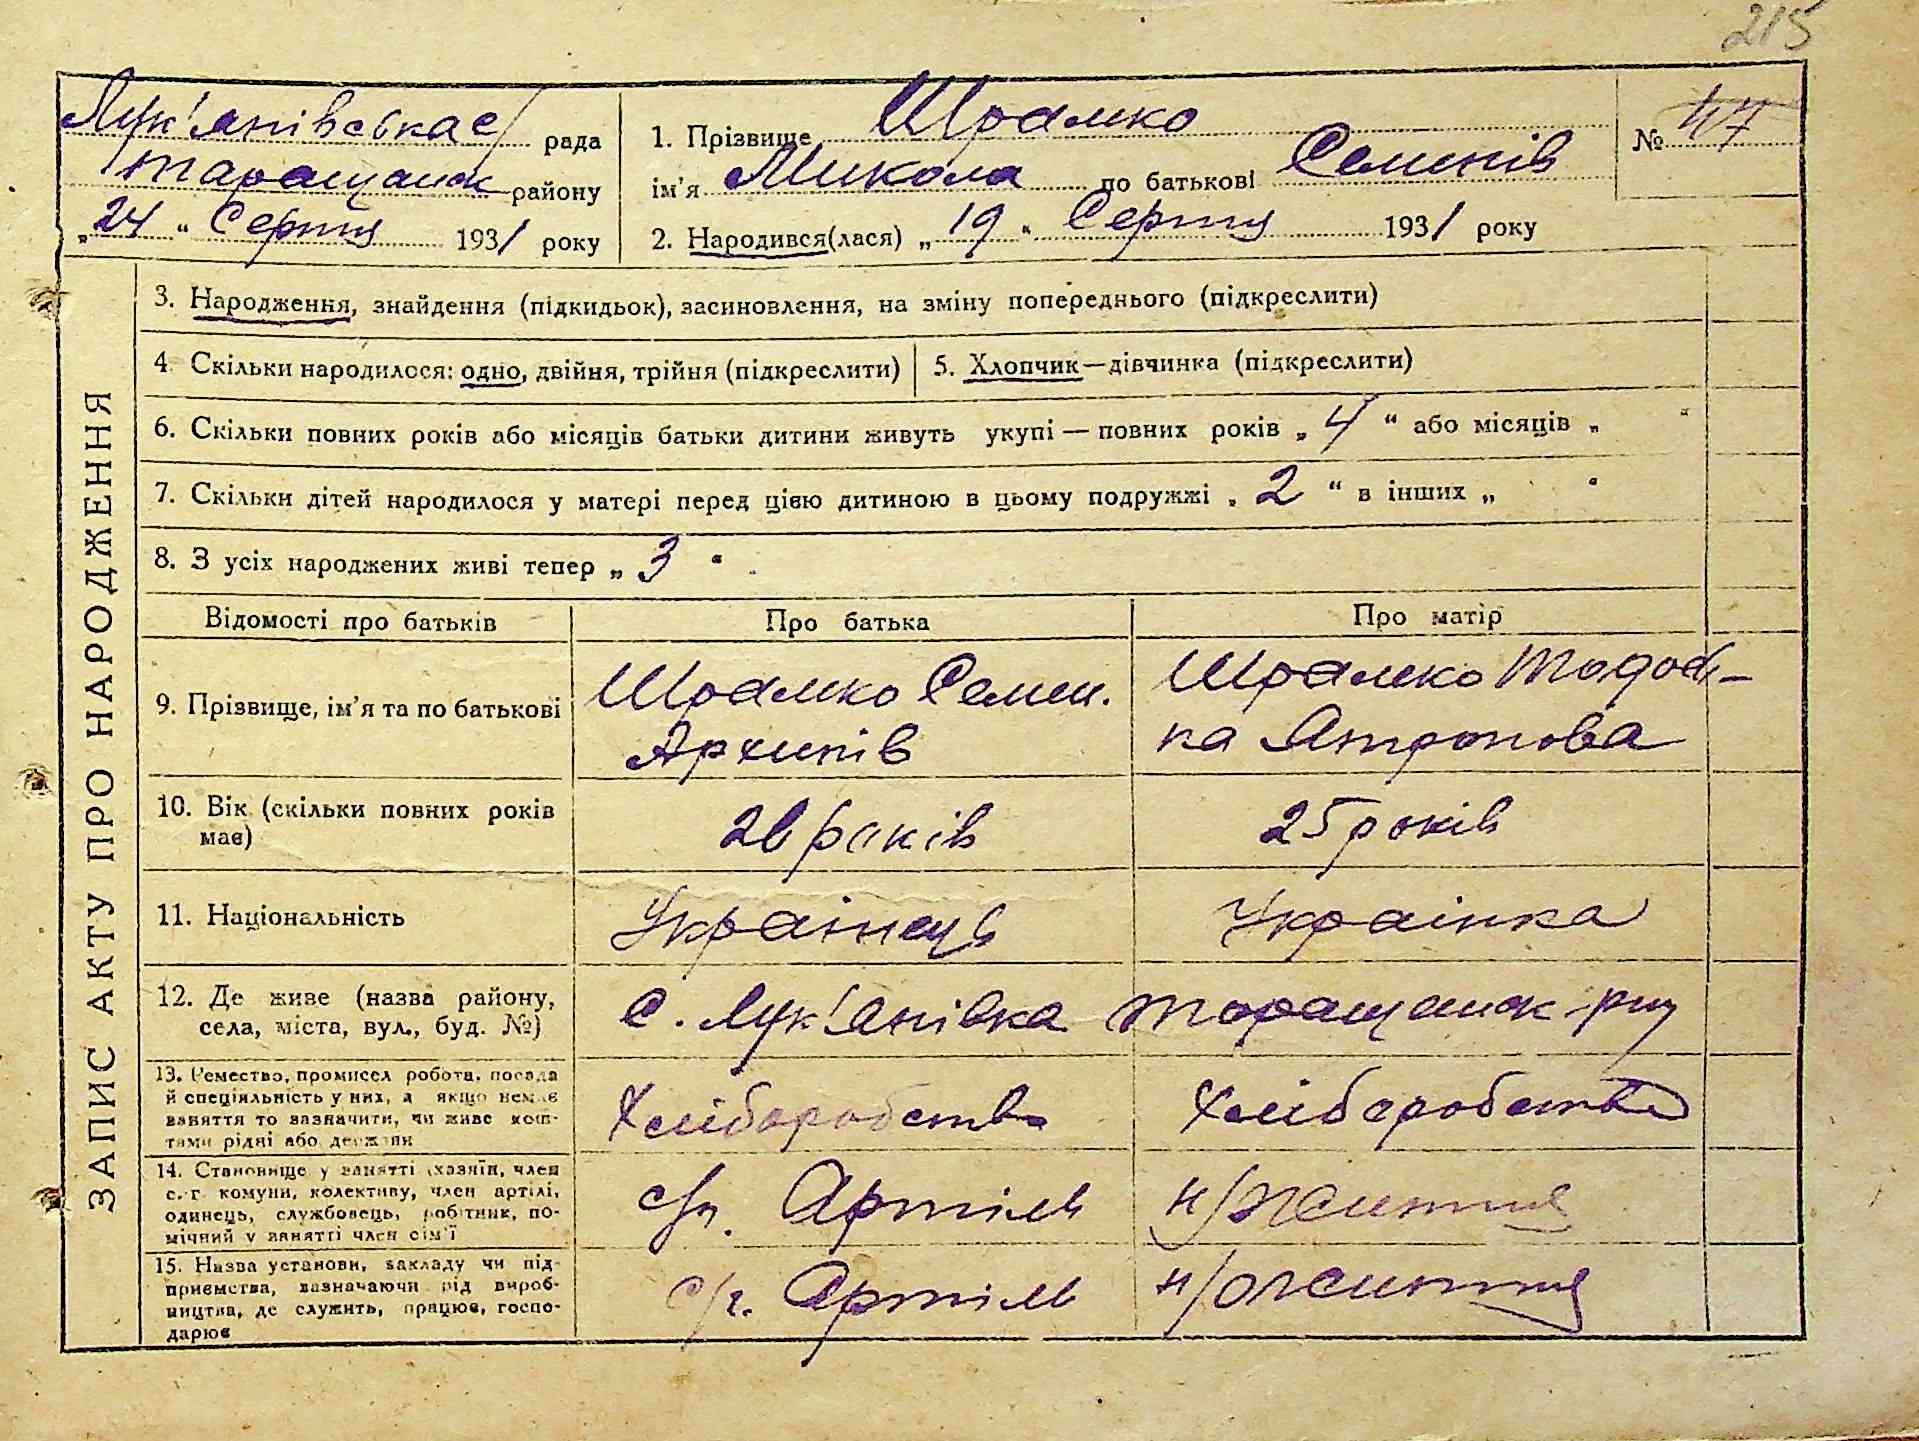 215
Лук'янівська с/ рада
Таращанськ району
„24“ Серпня 1931 року
1. Прізвище Шрамко
ім'я Микола по батькові Семенів
№ 47
2. Народився(лася) „19“ Серпня 1931 року
ЗАПИС АКТУ ПРО НАРОДЖЕННЯ
3. Народження, знайдення (підкидьок), засиновлення, на зміну попереднього (підкреслити)
4 Скільки народилося: одно, двійня, трійня (підкреслити)
5. Хлопчик—дівчинка (підкреслити)
6. Скільки повних років або місяців батьки дитини живуть укупі — повних років „4“ або місяців „ “
7. Скільки дітей народилося у матері перед цією дитиною в цьому подружжі „2“ в інших „ “
8. З усіх народжених живі тепер „3“
Відомості про батьків
Про батька
Про матір
9. Прізвище, ім'я та по батькові
Шрамко Семен.
Архипів
Шрамко Тодос-
ка
10. Вік (скільки повних років
має)
26 років
25 років
11. Національність
Українець
Українка
12. Де живе (назва району,
села, міста, вул., буд. №)
с. Лук'янівка Таращанськ р-ну
13. Ремество, промисел робота, посада
й спеціяльність у них, а якщо немає
заняття то зазначити, чи живе кош-
тами рідні або держави
Хліборобство
Хліборобство
14. Становище у занятті (хазяїн, член
с.-г комуни, колективу, член артілі,
одинець, службовець, робітник, по-
мічний у занятті член сім'ї
Артіль
15. Назва установи, закладу чи під-
приємства, зазначаючи рід вироб-
ництва, де служить, працює, госпо-
дарює
с/г. Артіль